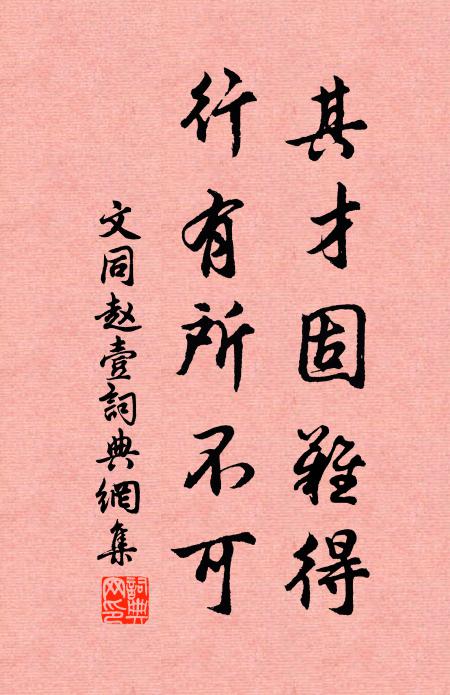 其才固難得
行有所不可
文同赵壹詞典網集
詞典
网印